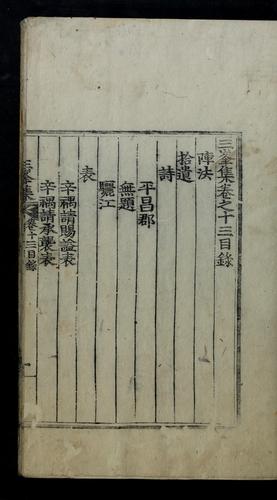 三峯集卷之十三目錄
陣法
拾遺
詩
平昌郡
無題
驪江
表
辛禑請賜諡表
辛禑請承襲表
三峯集
卷十三目錄
一